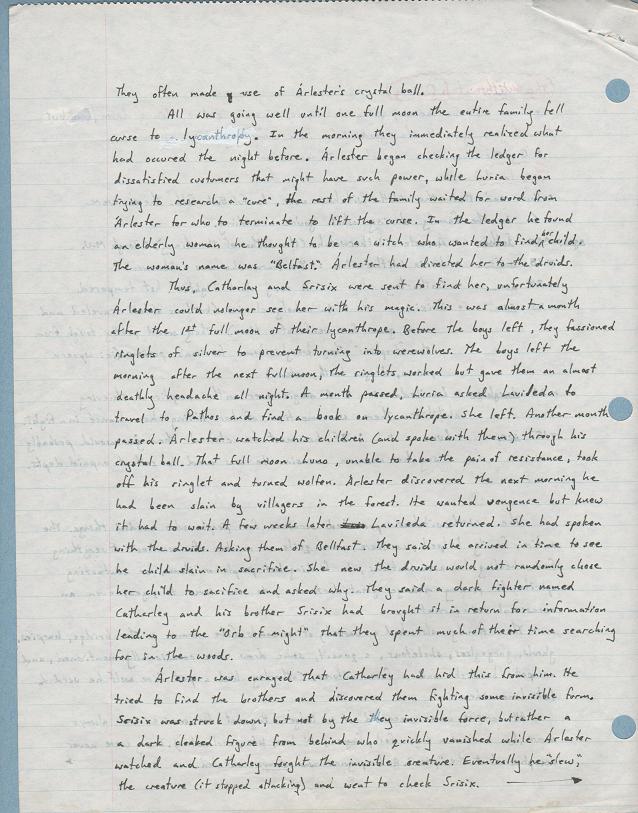 They often made use of Árlester's crystal ball.
All was going well until one full moon the entire family fell
curse to lycanthropy. In the morning they immediately realized what
had occured the night before. Árlester began checking the ledger for
dissatisfied custumers that might have such power, while Luria began
trying to research a "cure", the rest of the family waited for word from
Árlester for who to terminate to lift the curse. In the ledger he found
an elderly woman he thought to be a witch who wanted to find her child.
The woman's name was "Belfast." Árlester had directed her to the druids.
Thus, Catharley and Srisix were sent to find her, unfortunately
Arlester could nolonger see her with his magic. This was almost a month
after the 1st full moon of their lycanthrope. Before the boys left, they fassioned
ringlets of silver to prevent turning into werewolves. The boys left the
morning after the next full moon, the ringlets worked but gave them an almost
deathly headache all night. A month passed, Luria asked Lavileda to
travel to Pathos and find a book on lycanthrope. She left. Another month
passed. Árlester watched his children (and spoke with them) through his
crystal ball. That full moon Luno, unable to take the pain of resistance, took
off his ringlet and turned wolfen. Arlester discovered the next morning he
had been slain by villagers in the forest. He wanted vengence but knew
it had to wait. A few weeks later Lavileda returned. She had spoken
with the druids. Asking them of Bellfast. They said she arrived in time to see
he child slain in sacrifice. She new the druids would not randomly chose
her child to sacifice and asked why. They said a dark fighter named
Catharley and his brother Srisix had brought it in return for information
leading to the "Orb of might" that they spent much of their time searching
for in the woods.
Árlester was enraged that Catharley had hid this from him. He
tried to find the brothers and discovered them fighting some invisible form.
Srisix was struck down, but not by the invisible force, but rather a
a dark cloaked figure from behind who quickly vanished while Árlester
watched and Catharley fought the invisible creature. Eventually he "slew",
the creature (it stopped attacking) and went to check Srisix. →